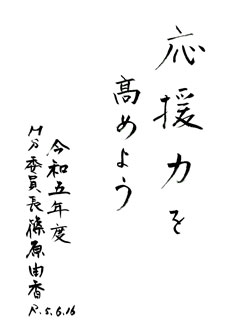 応援力を
高めよう
令和五年度
H分委員長篠原由香
R.5.6.16